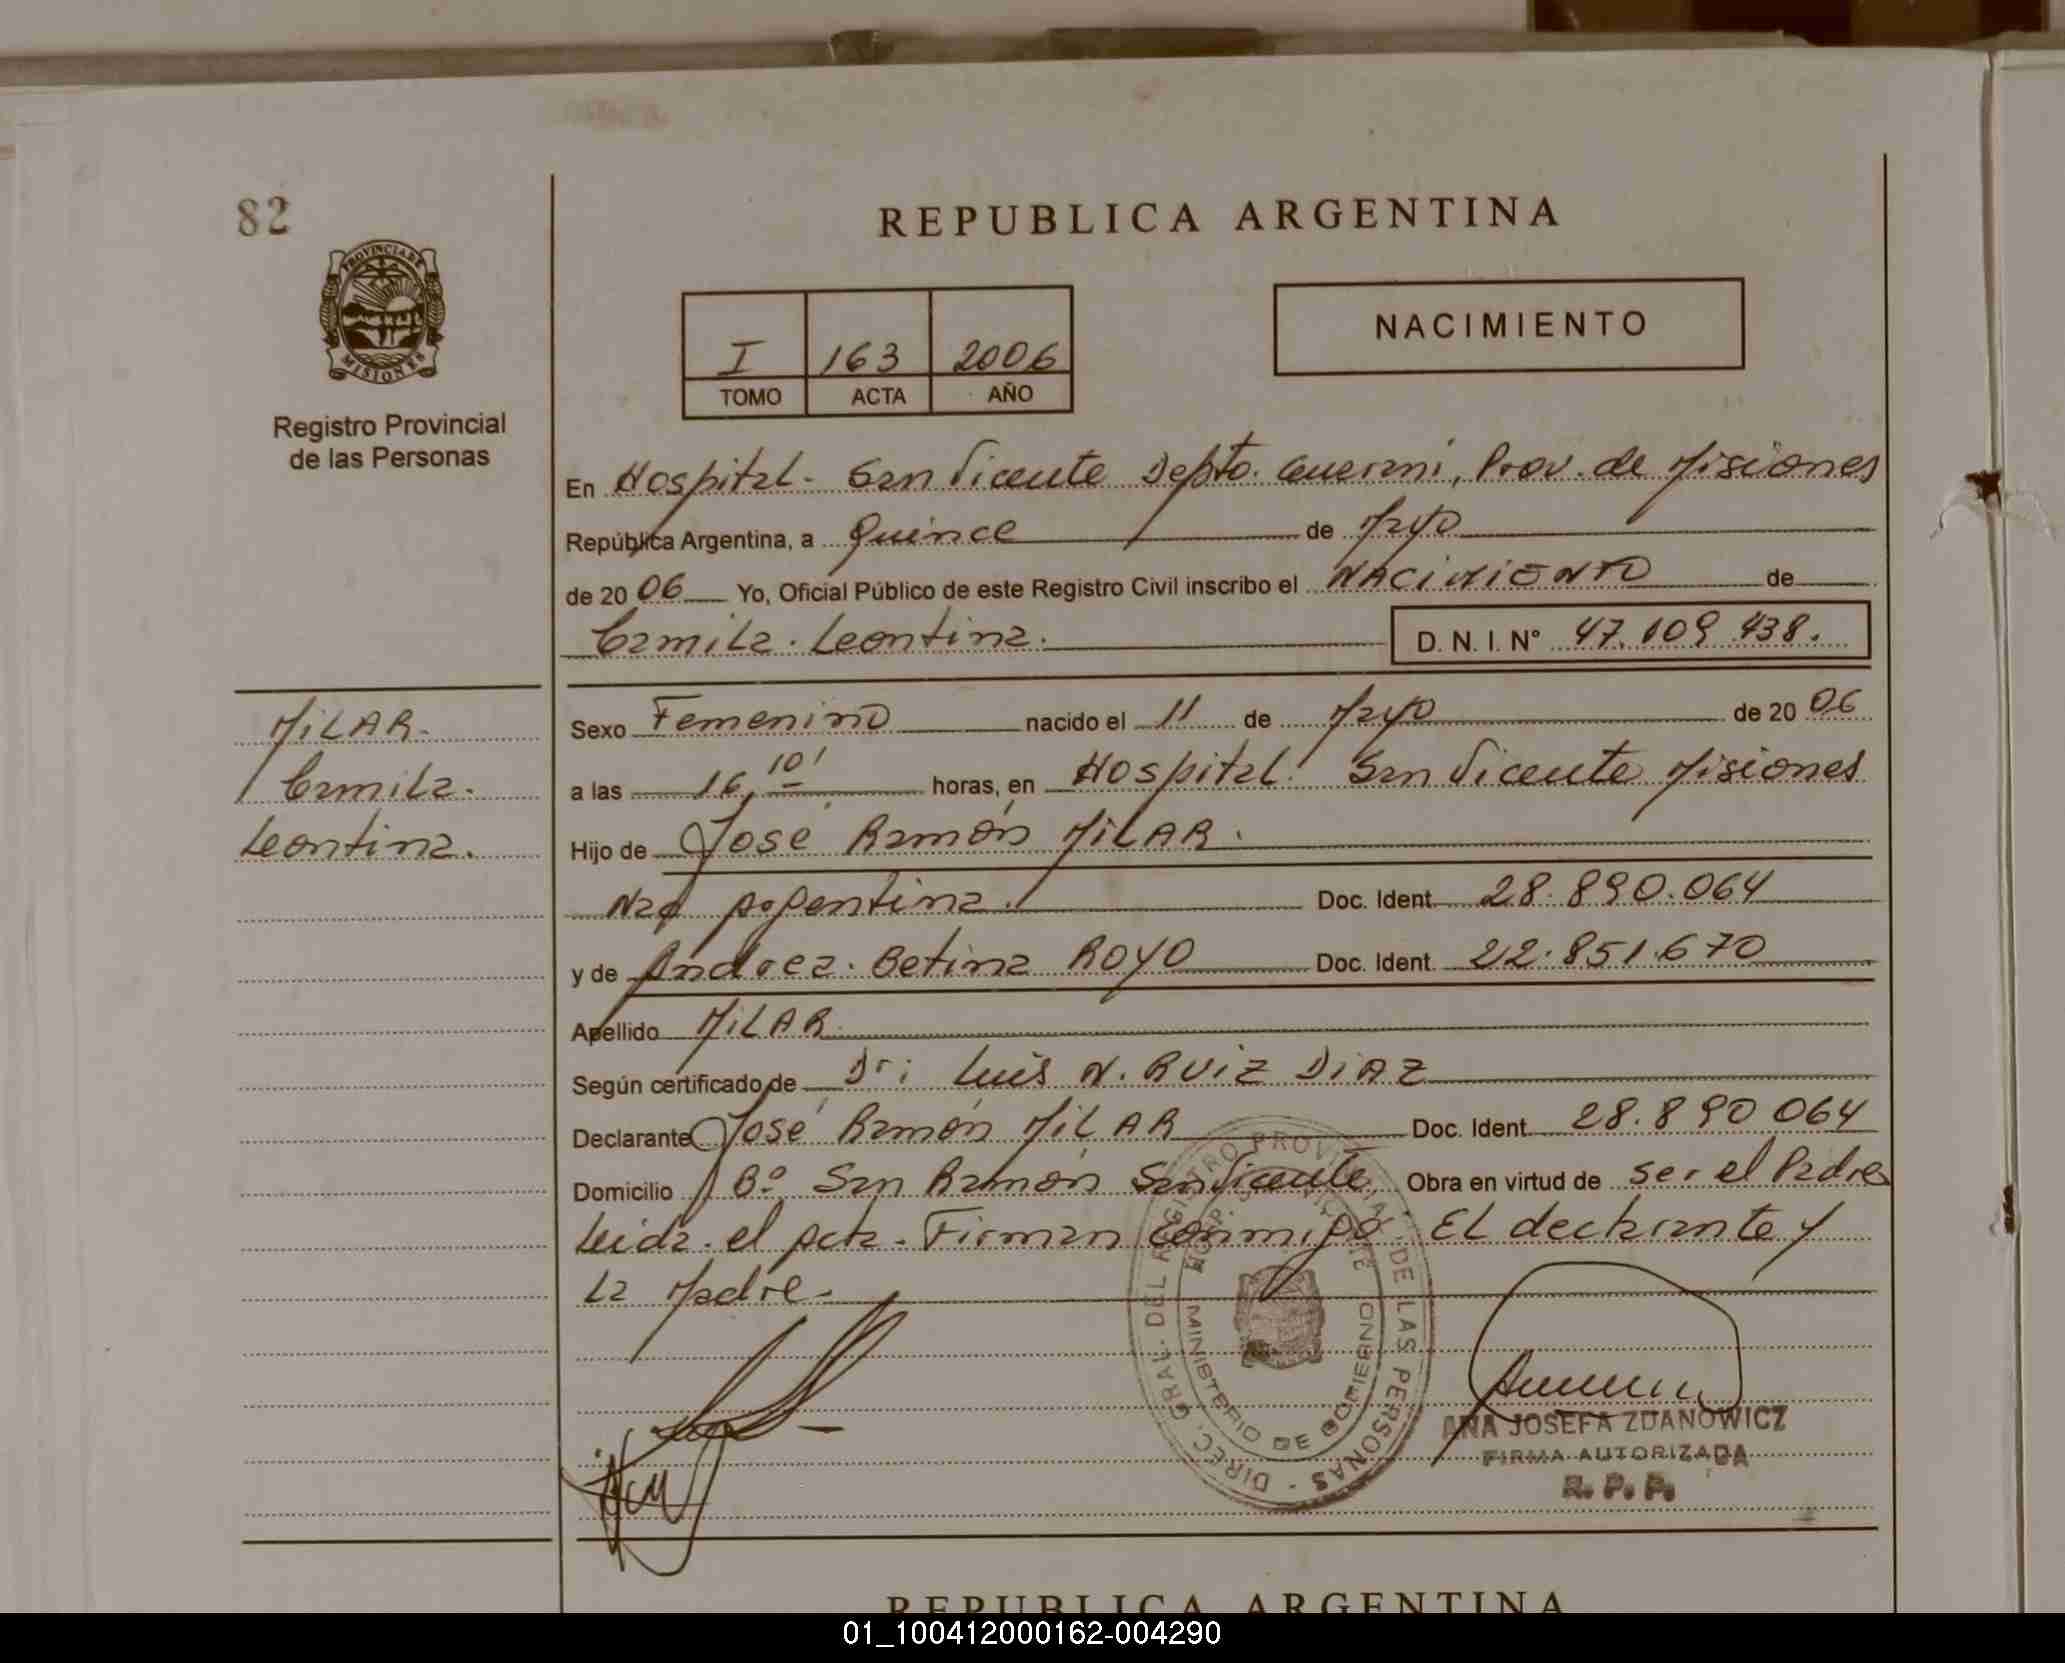 82
REPUBLICA ARGENTINA
PROVINCIA DE
MISIONES
Registro Provincial
de las Personas
I 163 2006
TOMO ACTA AÑO
NACIMIENTO
En Hospital - San Vicente Depto. Guarani, Prov. de Misiones
República Argentina, a Quince de Mayo
de 20 06 Yo, Oficial Público de este Registro Civil inscribo el NACIMIENTO de
Camila. Leontina.
D. N. I. Nº 47.109.438.
MILAR.
Camila.
Leontina.
Sexo Femenino nacido el 11 de Mayo de 20 06
a las 16,10' horas, en Hospital. San Vicente Misiones
Hijo de José Ramón MILAR.
Nac Argentina. Doc. Ident. 28.890.064
y de Andrea. Betina ROYO Doc. Ident. 22.851.670
Apellido MILAR.
Según certificado de Dr; Luis N. RUIZ DIAZ
Declarante José Ramón MILAR Doc. Ident. 28.890 064
Domicilio Bº San Ramón San Vicente, Obra en virtud de ser el Padre
Leida el Acta. Firman conmigo. EL declarante y
La Madre.
DIREC. GRAL. DEL REGISTRO PROVINCIAL DE LAS PERSONAS
HOSP. SAN VICENTE
MINISTERIO DE GOBIERNO
ANA JOSEFA ZDANOWICZ
FIRMA AUTORIZADA
R. P. P.
REPUBLICA ARGENTINA
01_100412000162-004290